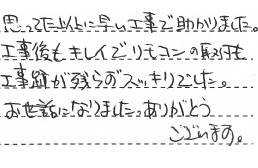 思ってた以上に早い工事で助かりました。
工事後もキレイでリモコンの取付も
工事跡が残らずスッキリでした。
お世話になりました。ありがとう
ございます。